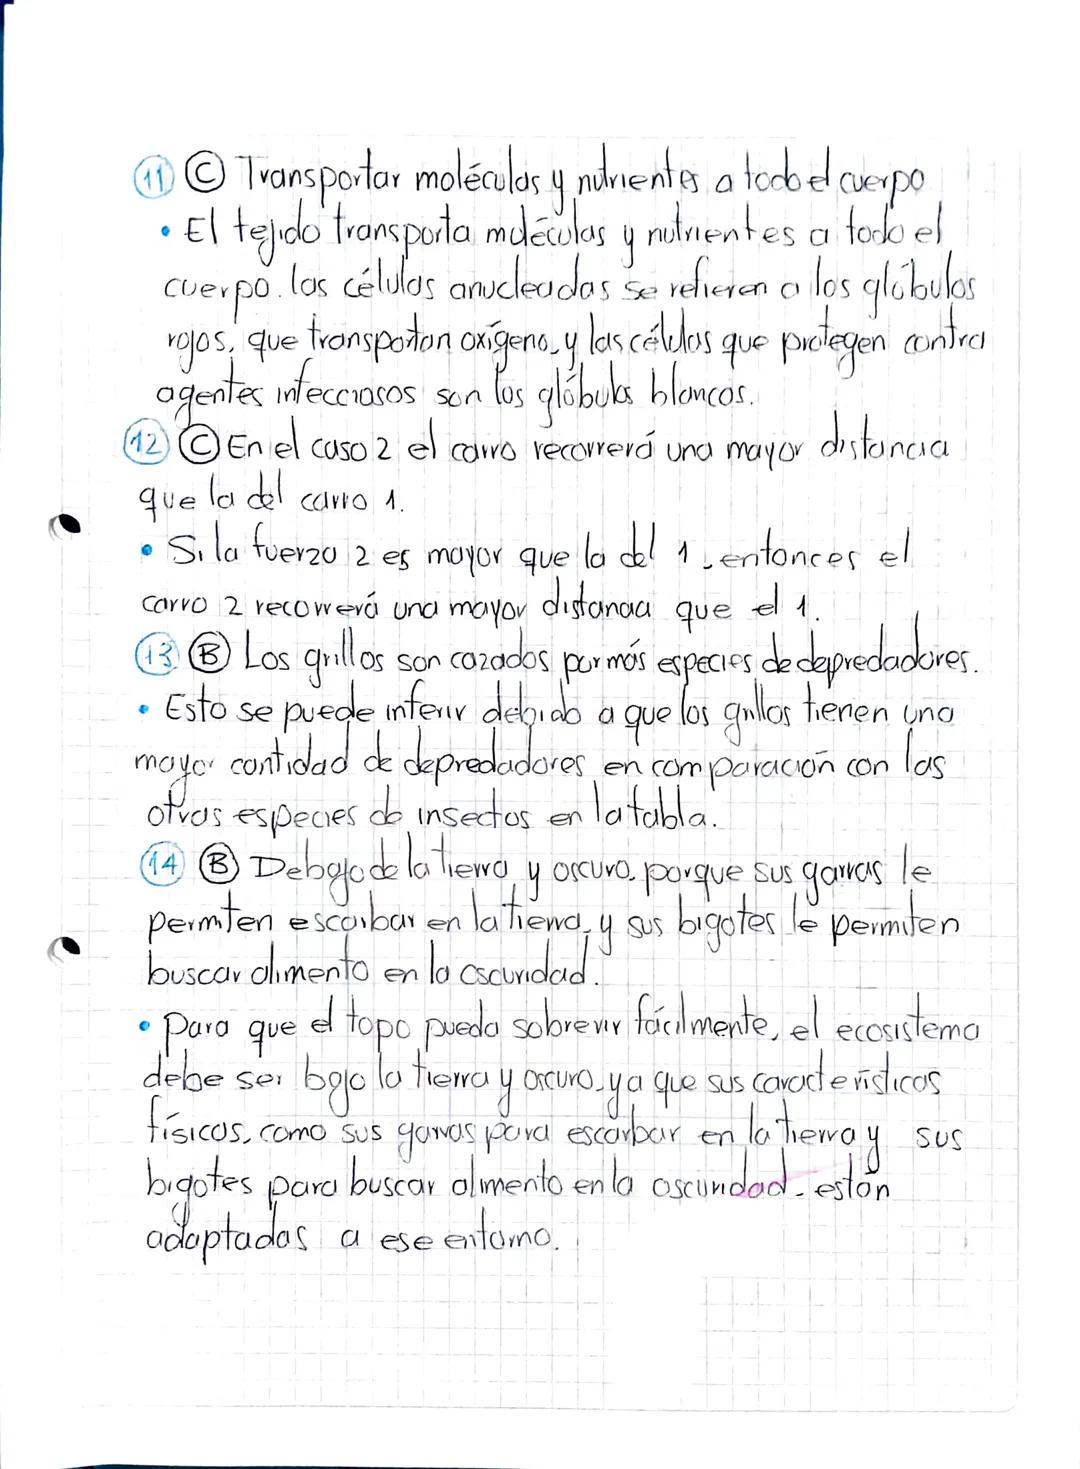 11 C Transportar moléculas y nutrientes a todo el cuerpo
• El tejido transporta moléculas y nutrientes a todo el
cuerpo. las células anucleadas se refieren a los glóbulos
rojos, que transportan oxígeno, y las células que protegen contra
agentes infecciosos son los glóbulos blancos.
12 C En el caso 2 el carro recorrerá una mayor distancia
que la del carro 1.
• Si la fuerza 2 es mayor que la del 1, entonces el
carro 2 recorrerá una mayor distancia que el 1.
13 B Los grillos son cazados por más especies de depredadores.
• Esto se puede inferir debido a que los grillos tienen una
mayor cantidad de depredadores en comparación con las
otras especies de insectos en la tabla.
14 B Debajo de la tierra y oscuro, porque sus garras le
permiten escarbar en la tierra, y sus bigotes le permiten
buscar alimento en la oscuridad.
• Para que el topo pueda sobrevir fácilmente, el ecosistema
debe ser bajo la tierra y oscuro, ya que sus características
físicas, como sus garras para escarbar en la tierra y sus
bigotes para buscar alimento en la oscuridad, están
adaptadas a ese entorno.